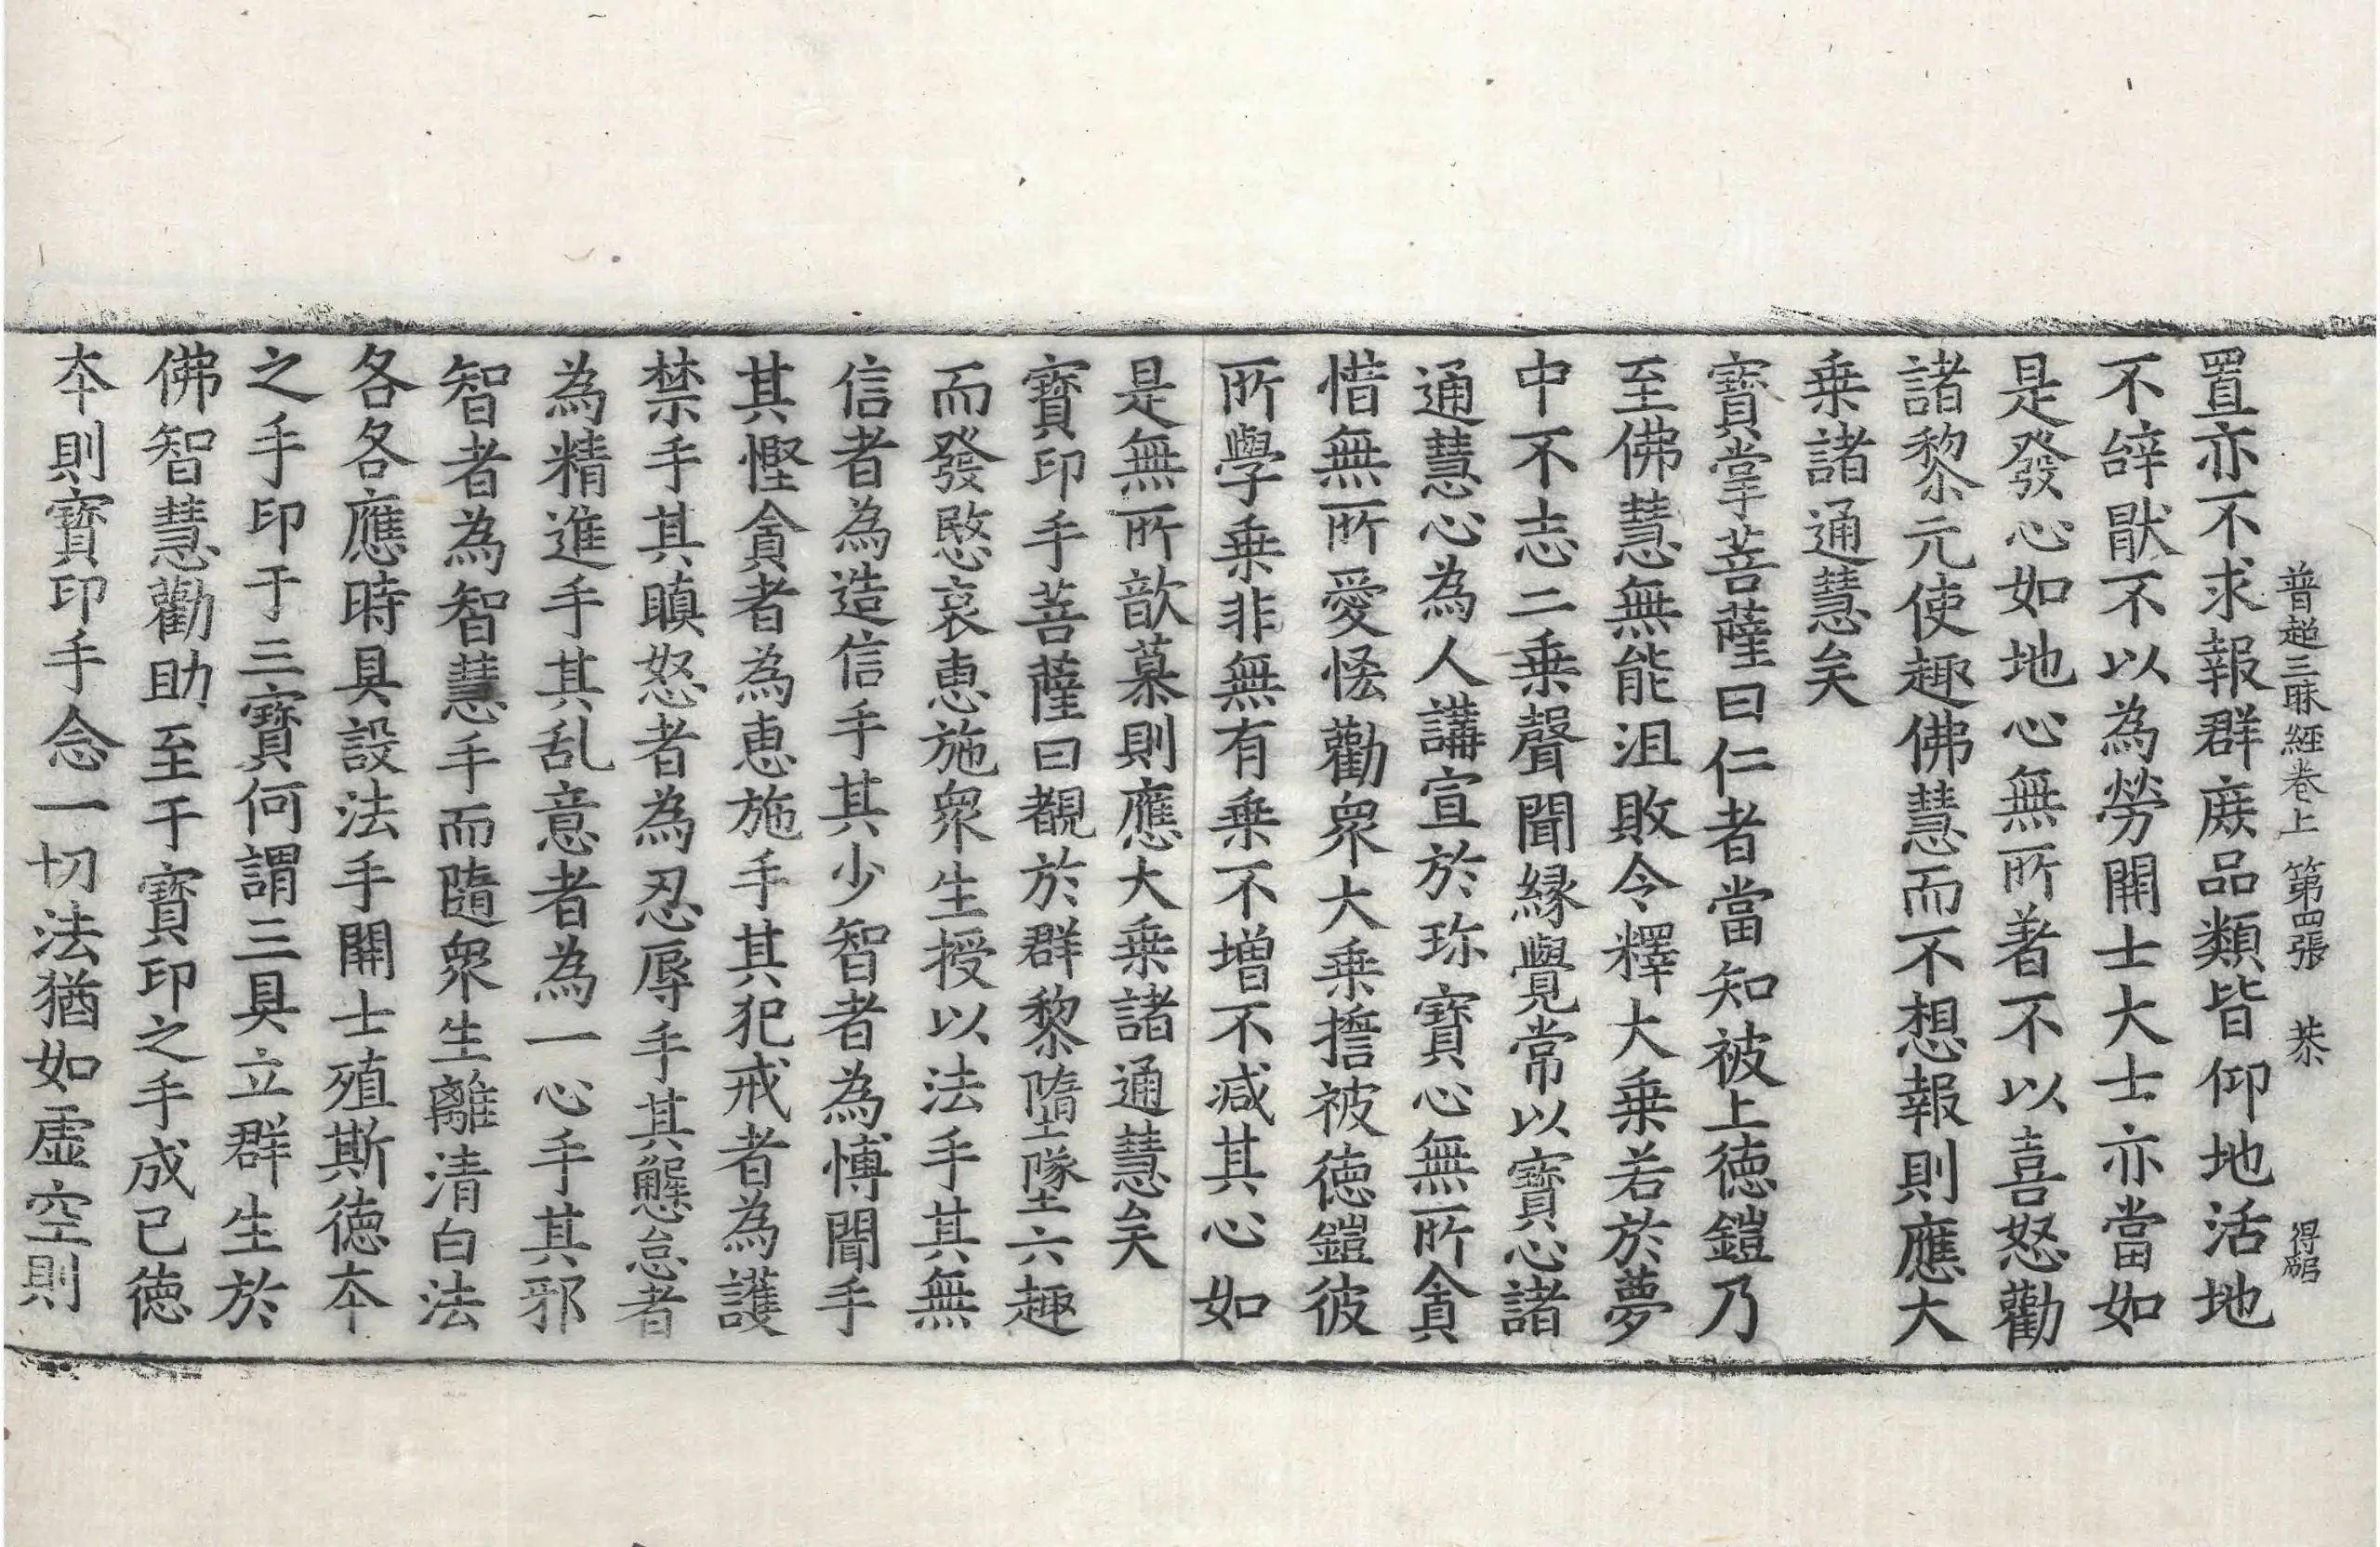 普超三昧經卷上 第四張 恭 得琚
置亦不求報群庻品類皆仰地活地
不辝猒不以為勞開士大士亦當如
是發心如地心無所著不以喜怒勸
諸黎元使趣佛慧而不想報則應大
乗諸通慧矣
寶掌菩薩曰仁者當知被上徳鎧乃
至佛慧無能沮敗令釋大乗若於夢
中不志二乗聲聞縁覺常以寶心諸
通慧心為人講宣於珎寶心無所貪
惜無所愛悋勸衆大乗擔被徳鎧彼
所學乗非無有乗不增不減其心如
是無所歆慕則應大乗諸通慧矣
寶印手菩薩曰覩於群黎墮墜六趣
而發愍哀恵施衆生授以法手其無
信者為造信手其少智者為博聞手
其慳貪者為恵施手其犯戒者為護
禁手其瞋怒者為忍辱手其懈怠者
為精進手其乱意者為一心手其邪
智者為智慧手而隨衆生離清白法
各各應時具設法手開士殖斯徳本
之手印于三寶何謂三具立群生於
佛智慧勸助至于寶印之手成已徳
本則寶印手念一切法猶如虛空則